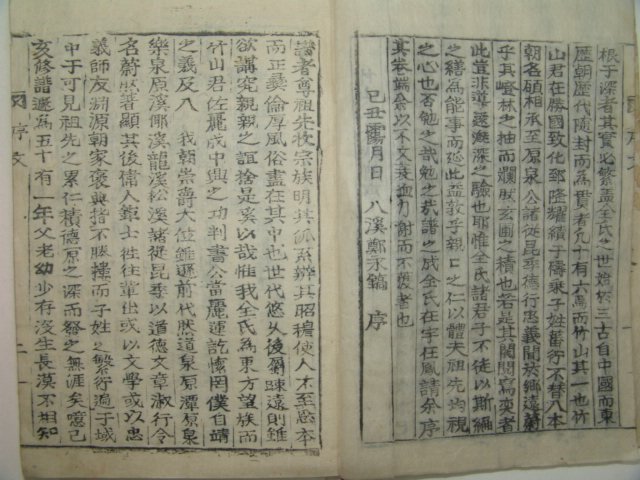 根子深者其實必繁全氏之世始於三古自中國而東
歷朝歷代隨封而爲貫者凡十有六焉而竹山其一也竹
山君在勝國致化郅隆耀績子𧜟孫子姓蕃衍不替入本
朝名碩相承至原泉公諸從昆季德行忠義聞於鄉遠蔚
乎其峰林之抽而爛然玄圃之積也若是其閥閱寫奕者
此豈非導之深之驗也耶惟全氏諸君子不徒以斯編
之繕爲能事而益敦乎親之仁以體夫祖先均視
之心也否勉之哉勉之哉譜之成全氏在宇任鳳請余序
其卷端余以不文辭不獲者也
己丑霜月日 八溪鄭永鎬 序
譜者尊祖先收宗族明其派系辨其昭穆使人不至忘本
而正彝倫厚風俗盡在其中也世代悠久後裔疎遠則雖
欲講究親親之誼捨是奚以哉惟我全氏爲東方望族而
竹山君佐麗成中興之功判書公當麗運訖懷罔僕自靖
之義及入 我朝崇爵大位雖遜前代然道泉原潭原泉
樂泉原溪倻溪龍溪松溪諸從昆季以道德文章淑行令
名蔚然著顯其後儒人鉅士往往輩出或以文學或以忠
義師友淵源朝家褒典指不勝摟而子姓之繁衍遍于域
中于可見祖先之累仁積德原之深而發之無涯矣噫己
亥修譜遽爲五十有一年父老幼少存沒生長漠不相知
序文